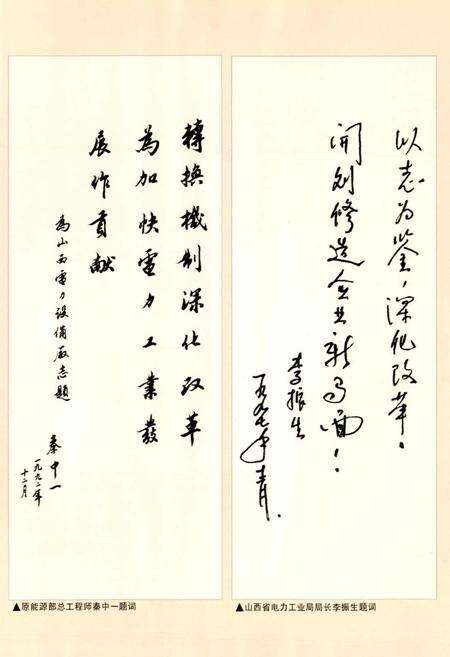 轉換機制深化改革
為加快電力工業發
展作貢献
為山西電力設備廠志題
秦中一
一九九二年
十二月
▲原能源部总工程师秦中一题词
以志为鉴，深化改革！
開创修造企业新局面！
李振生
▲山西省电力工业局局长李振生题词